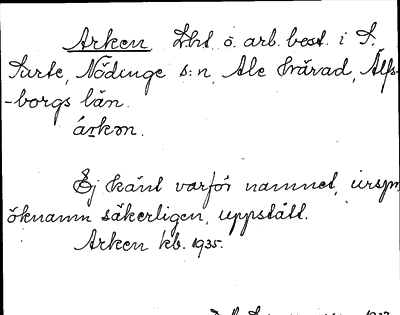 Arken Lht o. arb. bost. i S.
Surte, Nödinge s:n, Ale härad, Älfs-
-borgs län.
árkən.
Ej känt varför namnet, urspr.
öknamn säkerligen, uppstått.
Arken kb. 1935.